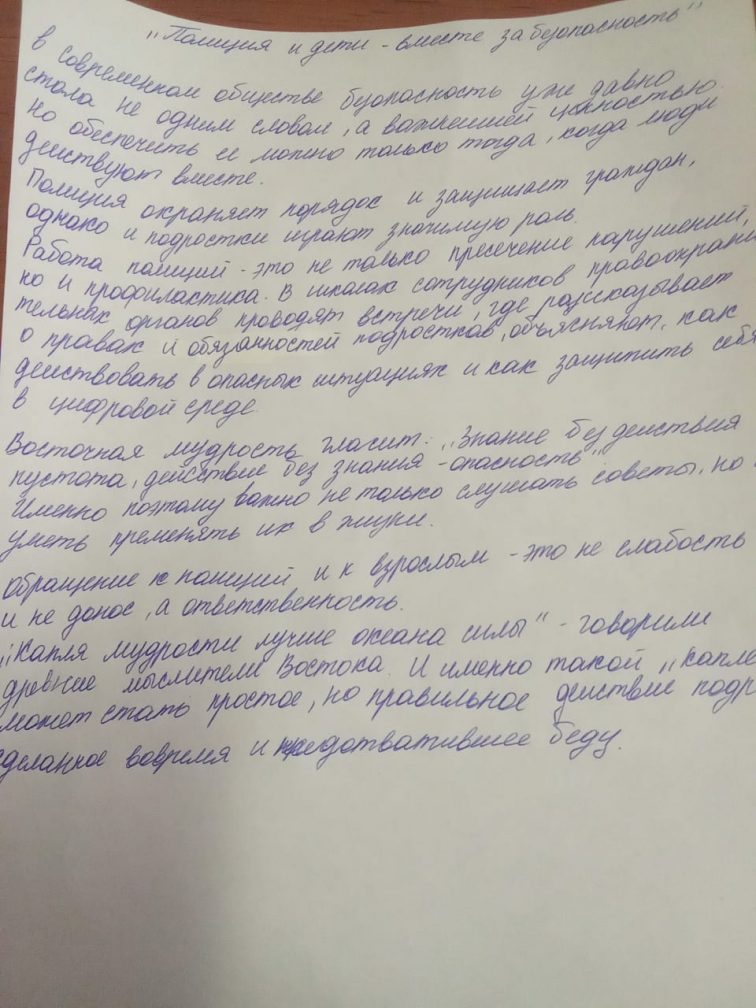 "Полиция и дети - вместе за безопасность"
в современном обществе безопасность уже давно
стала не одним словом, а важнейшей ценностью.
Но обеспечить ее можно только тогда, когда люди
действуют вместе.
Полиция охраняет порядок и защищает граждан,
однако и подростки играют значимую роль.
Работа полиций - это не только пресечение нарушений,
но и профиластика. В школах сотрудников правоохрани
тельных органов проводят встречи, где разсказывает
о правах и обязанностей подростков, объясняют, как
действовать в опасных ситуациях и как защитить себя
в цифровой среде.
Восточная мудрость гласит: "Знание без действия
пустота, действие без знания - опасность"
Именно поэтому важно не только слушать советы, но
уметь пременять их в жизни.
обращение к полиций и к взрослым - это не слабость
и не донос, а ответственность.
"Капля мудрости лучше океана силы" - говорили
древние мыслители Востока. И именно такой "капле
может стать простое, но правильное действие подр
сделанное вовремя и предотватившее беду.